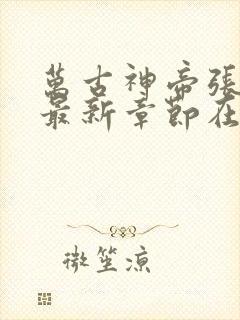 萬古神帝張
最新章節在
微笙凉